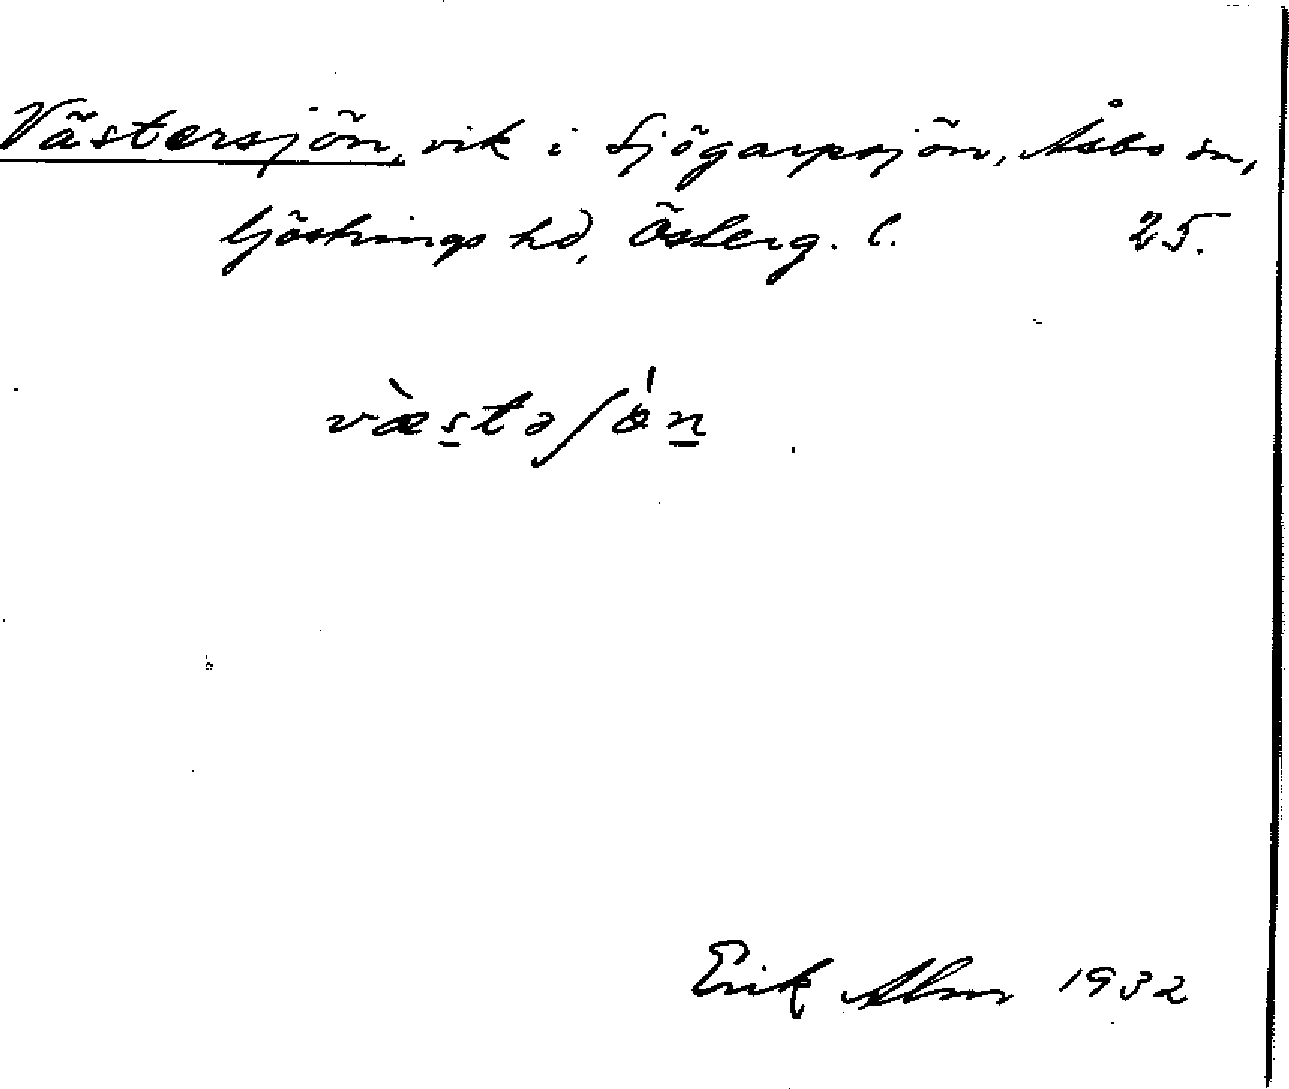 Västersjön, vik i Sjögarpsjön, Åsbo sn,
Göstrings hd, Österg. l. 25.
væ̀stəʃǿn
Erik Alm 1932